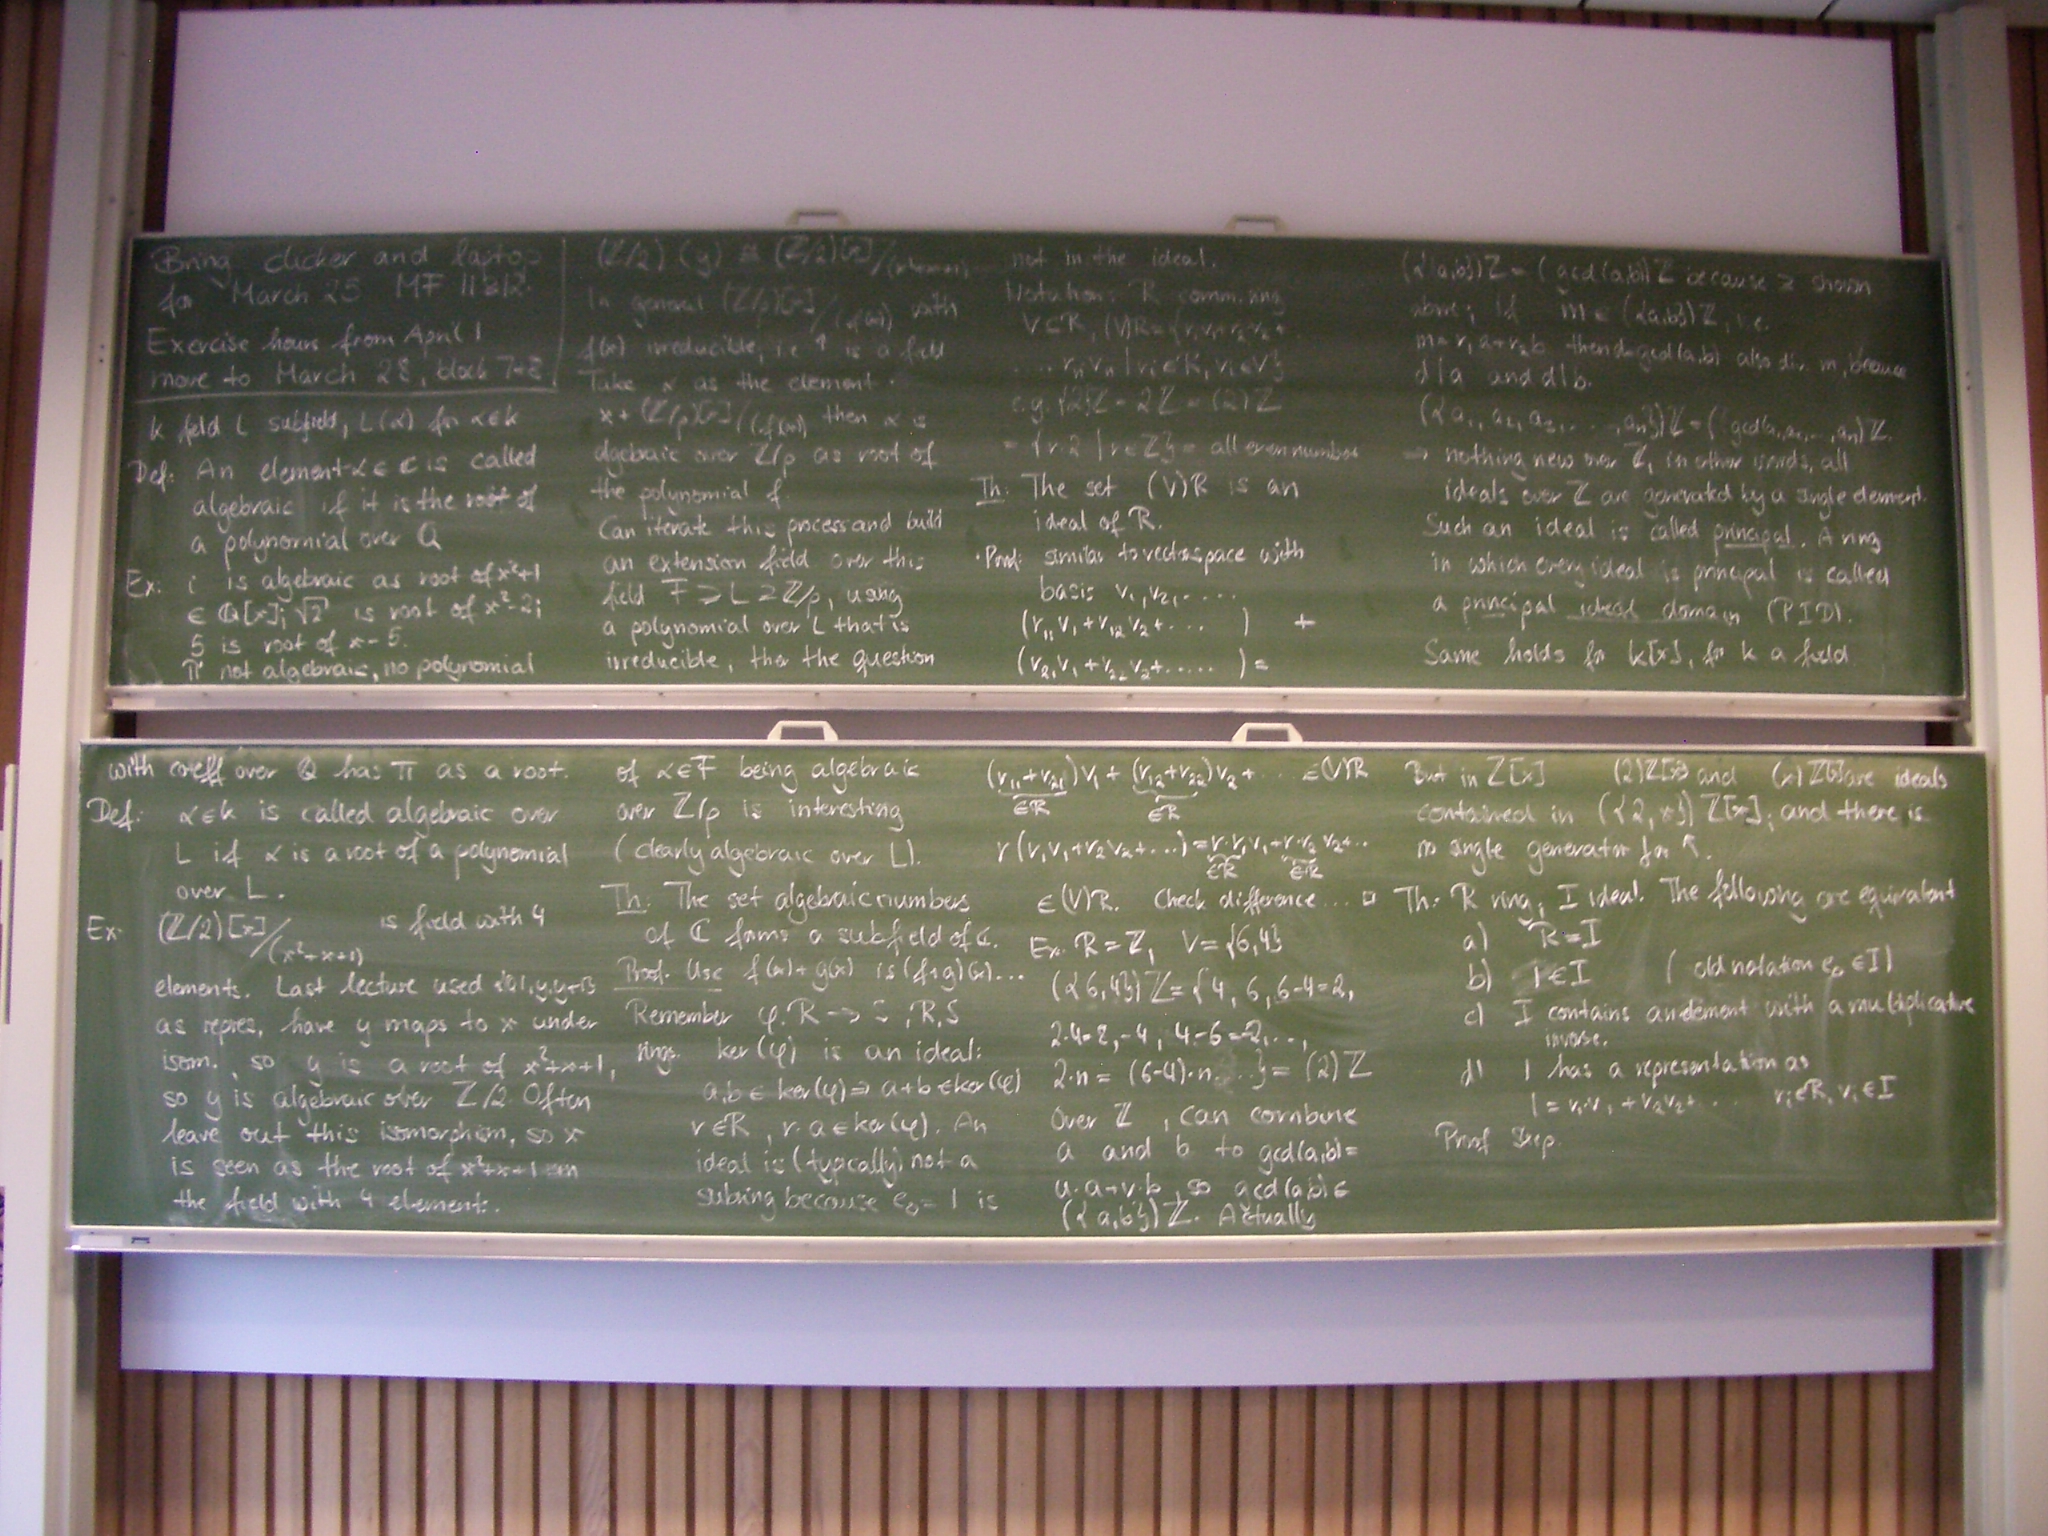 Bring clicker and laptop
for March 25 MF 11&12.
Exercise hours from April 1
move to March 28, block 7+8
k field L subfield, L(α) for α∈k
Def: An element α∈ℂ is called
algebraic if it is the root of
a polynomial over Q
Ex: i is algebraic as root of x²+1
∈ Q[x]; √2 is root of x²-2;
5 is root of x-5.
π not algebraic, no polynomial
with coeff over Q has π as a root.
Def: α∈k is called algebraic over
L if α is a root of a polynomial
over L.
Ex: (Z/2)[x]/(x²+x+1) is field with 4
elements. Last lecture used {0,1,y,y+1}
as repres, have y maps to x under
isom., so y is a root of x²+x+1,
so y is algebraic over Z/2. Often
leave out this isomorphism, so x
is seen as the root of x²+x+1 in
the field with 4 elements.
(Z/2)(y) ≅ (Z/2)[x]/(x²+x+1)
In general (Z/p)[x]/(f(x)) with
f(x) irreducible, i.e. is a field
Take α as the element
x+(Z/p)[x]/(f(x)) then α is
algebraic over Z/p as root of
the polynomial f.
Can iterate this process and build
an extension field over this
field F ⊇ L ⊇ Z/p, using
a polynomial over L that is
irreducible, then the question
of α∈F being algebraic
over Z/p is interesting
(clearly algebraic over L).
Th: The set algebraic numbers
of ℂ forms a subfield of ℂ.
Proof: Use f(x)+g(x) is (f+g)(x)...
Remember φ: R → S; R,S
rings. ker(φ) is an ideal:
a,b ∈ ker(φ) ⇒ a+b ∈ ker(φ)
r∈R, r·a ∈ ker(φ). An
ideal is (typically) not a
subring because e₀=1 is
not in the ideal.
Notation: R comm. ring
V⊂R, (V)R={r₁v₁+r₂v₂+
.... rₙvₙ | rᵢ∈R, vᵢ∈V}
e.g. {2}Z = 2Z = (2)Z
= {r·2 | r∈Z} = all even number
Th: The set (V)R is an
ideal of R.
Proof: similar to vectorspace with
basis v₁,v₂,....
(r₁₁v₁+r₁₂v₂+.... ) +
(r₂₁v₁+r₂₂v₂+..... ) =
(r₁₁+r₂₁)v₁ + (r₁₂+r₂₂)v₂+... ∈(V)R
∈R ∈R
r(r₁v₁+r₂v₂+...) = r·r₁v₁+r·r₂v₂+..
∈R ∈R
∈(V)R. Check difference... □
Ex: R=Z, V={6,4}
({6,4})Z={4, 6, 6-4=2,
2·4=8, -4, 4-6=-2,...,
2·n = (6-4)·n,...} = (2)Z
Over Z, can combine
a and b to gcd(a,b)=
u·a+v·b, so gcd(a,b)∈
({a,b})Z. Actually
({a,b})Z = (gcd(a,b))Z because ⊇ shown
above; if m∈({a,b})Z, i.e.
m=r₁a+r₂b then d=gcd(a,b) also div. m, because
d|a and d|b.
({a₁, a₂, a₃,...,aₙ})Z=(gcd(a₁,a₂,..,aₙ))Z.
→ nothing new over Z, in other words, all
ideals over Z are generated by a single element.
Such an ideal is called principal. A ring
in which every ideal is principal is called
a principal ideal domain (PID).
Same holds for k[x], for k a field
But in Z[x] (2)Z[x] and (x)Z[x] are ideals
contained in ({2,x})Z[x]; and there is
no single generator for ↖.
Th: R ring, I ideal. The following are equivalent
a) R=I
b) 1∈I (old notation e₀∈I)
c) I contains an element with a multiplicative
inverse.
d) 1 has a representation as
1=r₁v₁+r₂v₂+... rᵢ∈R, vᵢ∈I
Proof Skip.